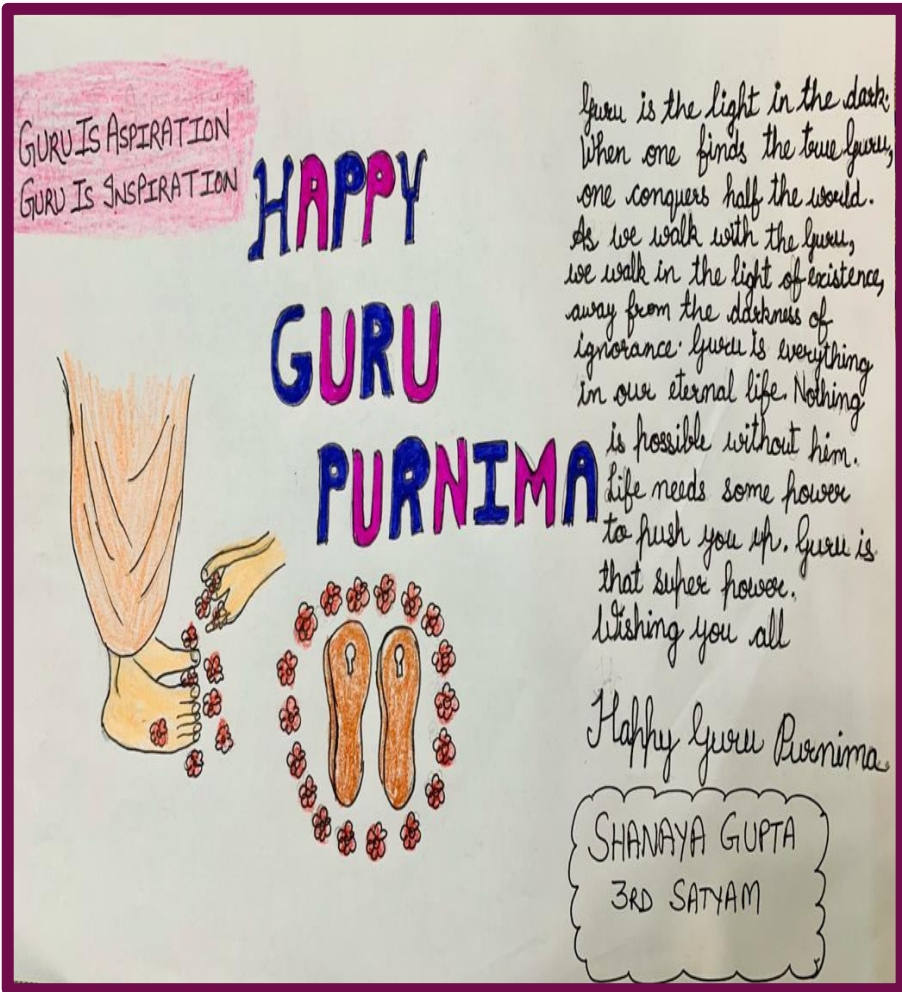 GURU IS ASPIRATION
GURU IS INSPIRATION
HAPPY
GURU
PURNIMA
Guru is the light in the dark.
When one finds the true Guru,
one conquers half the world.
As we walk with the Guru,
we walk in the light of existence,
away from the darkness of
ignorance. Guru is everything
in our eternal life. Nothing
is possible without him.
Life needs some power
to push you up. Guru is
that super power.
Wishing you all
Happy Guru Purnima
SHANAYA GUPTA
3RD SATYAM